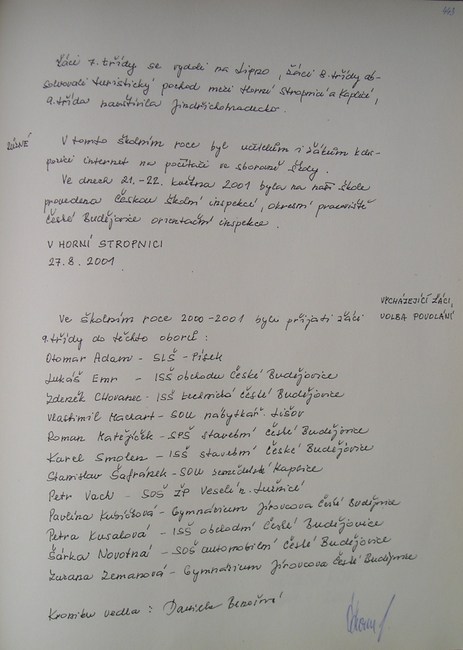 443
Žáci 7. třídy se vydali na Lipno, žáci 8. třídy ab-
solvovali turistický pochod mezi Horní Stropnicí a Kaplicí,
9. třída navštívila Jindřichohradecko.
RŮZNÉ
V tomto školním roce byl učitelům i žákům k dis-
pozici internet na počítači ve sborovně školy.
Ve dnech 21.-22. května 2001 byla na naší škole
provedena Českou školní inspekcí, okresní pracoviště
České Budějovice orientační inspekce.
V HORNÍ STROPNICI
27.8.2001
VYCHÁZEJÍCÍ ŽÁCI,
VOLBA POVOLÁNÍ
Ve školním roce 2000-2001 byli přijati žáci
9. třídy do těchto oborů:
Otomar Adam - SLŠ - Písek
Lukáš Emr - ISŠ obchodu České Budějovice
Zdeněk Chovanec - ISŠ technická České Budějovice
Vlastimil Machart - SOU nábytkář. Lišov
Roman Matějíček - SPŠ stavební České Budějovice
Karel Smolen - ISŠ stavební České Budějovice
Stanislav Šafránek - SOU zemědělské Kaplice
Petr Vach - SOŠ ŽP Veselí n. Lužnicí
Pavlína Kubičková - Gymnázium Jírovcova České Budějovice
Petra Kusalová - ISŠ obchodní České Budějovice
Šárka Novotná - SOŠ automobilní České Budějovice
Zuzana Zemanová - Gymnázium Jírovcova České Budějovice
Kroniku vedla: Daniela Benešová